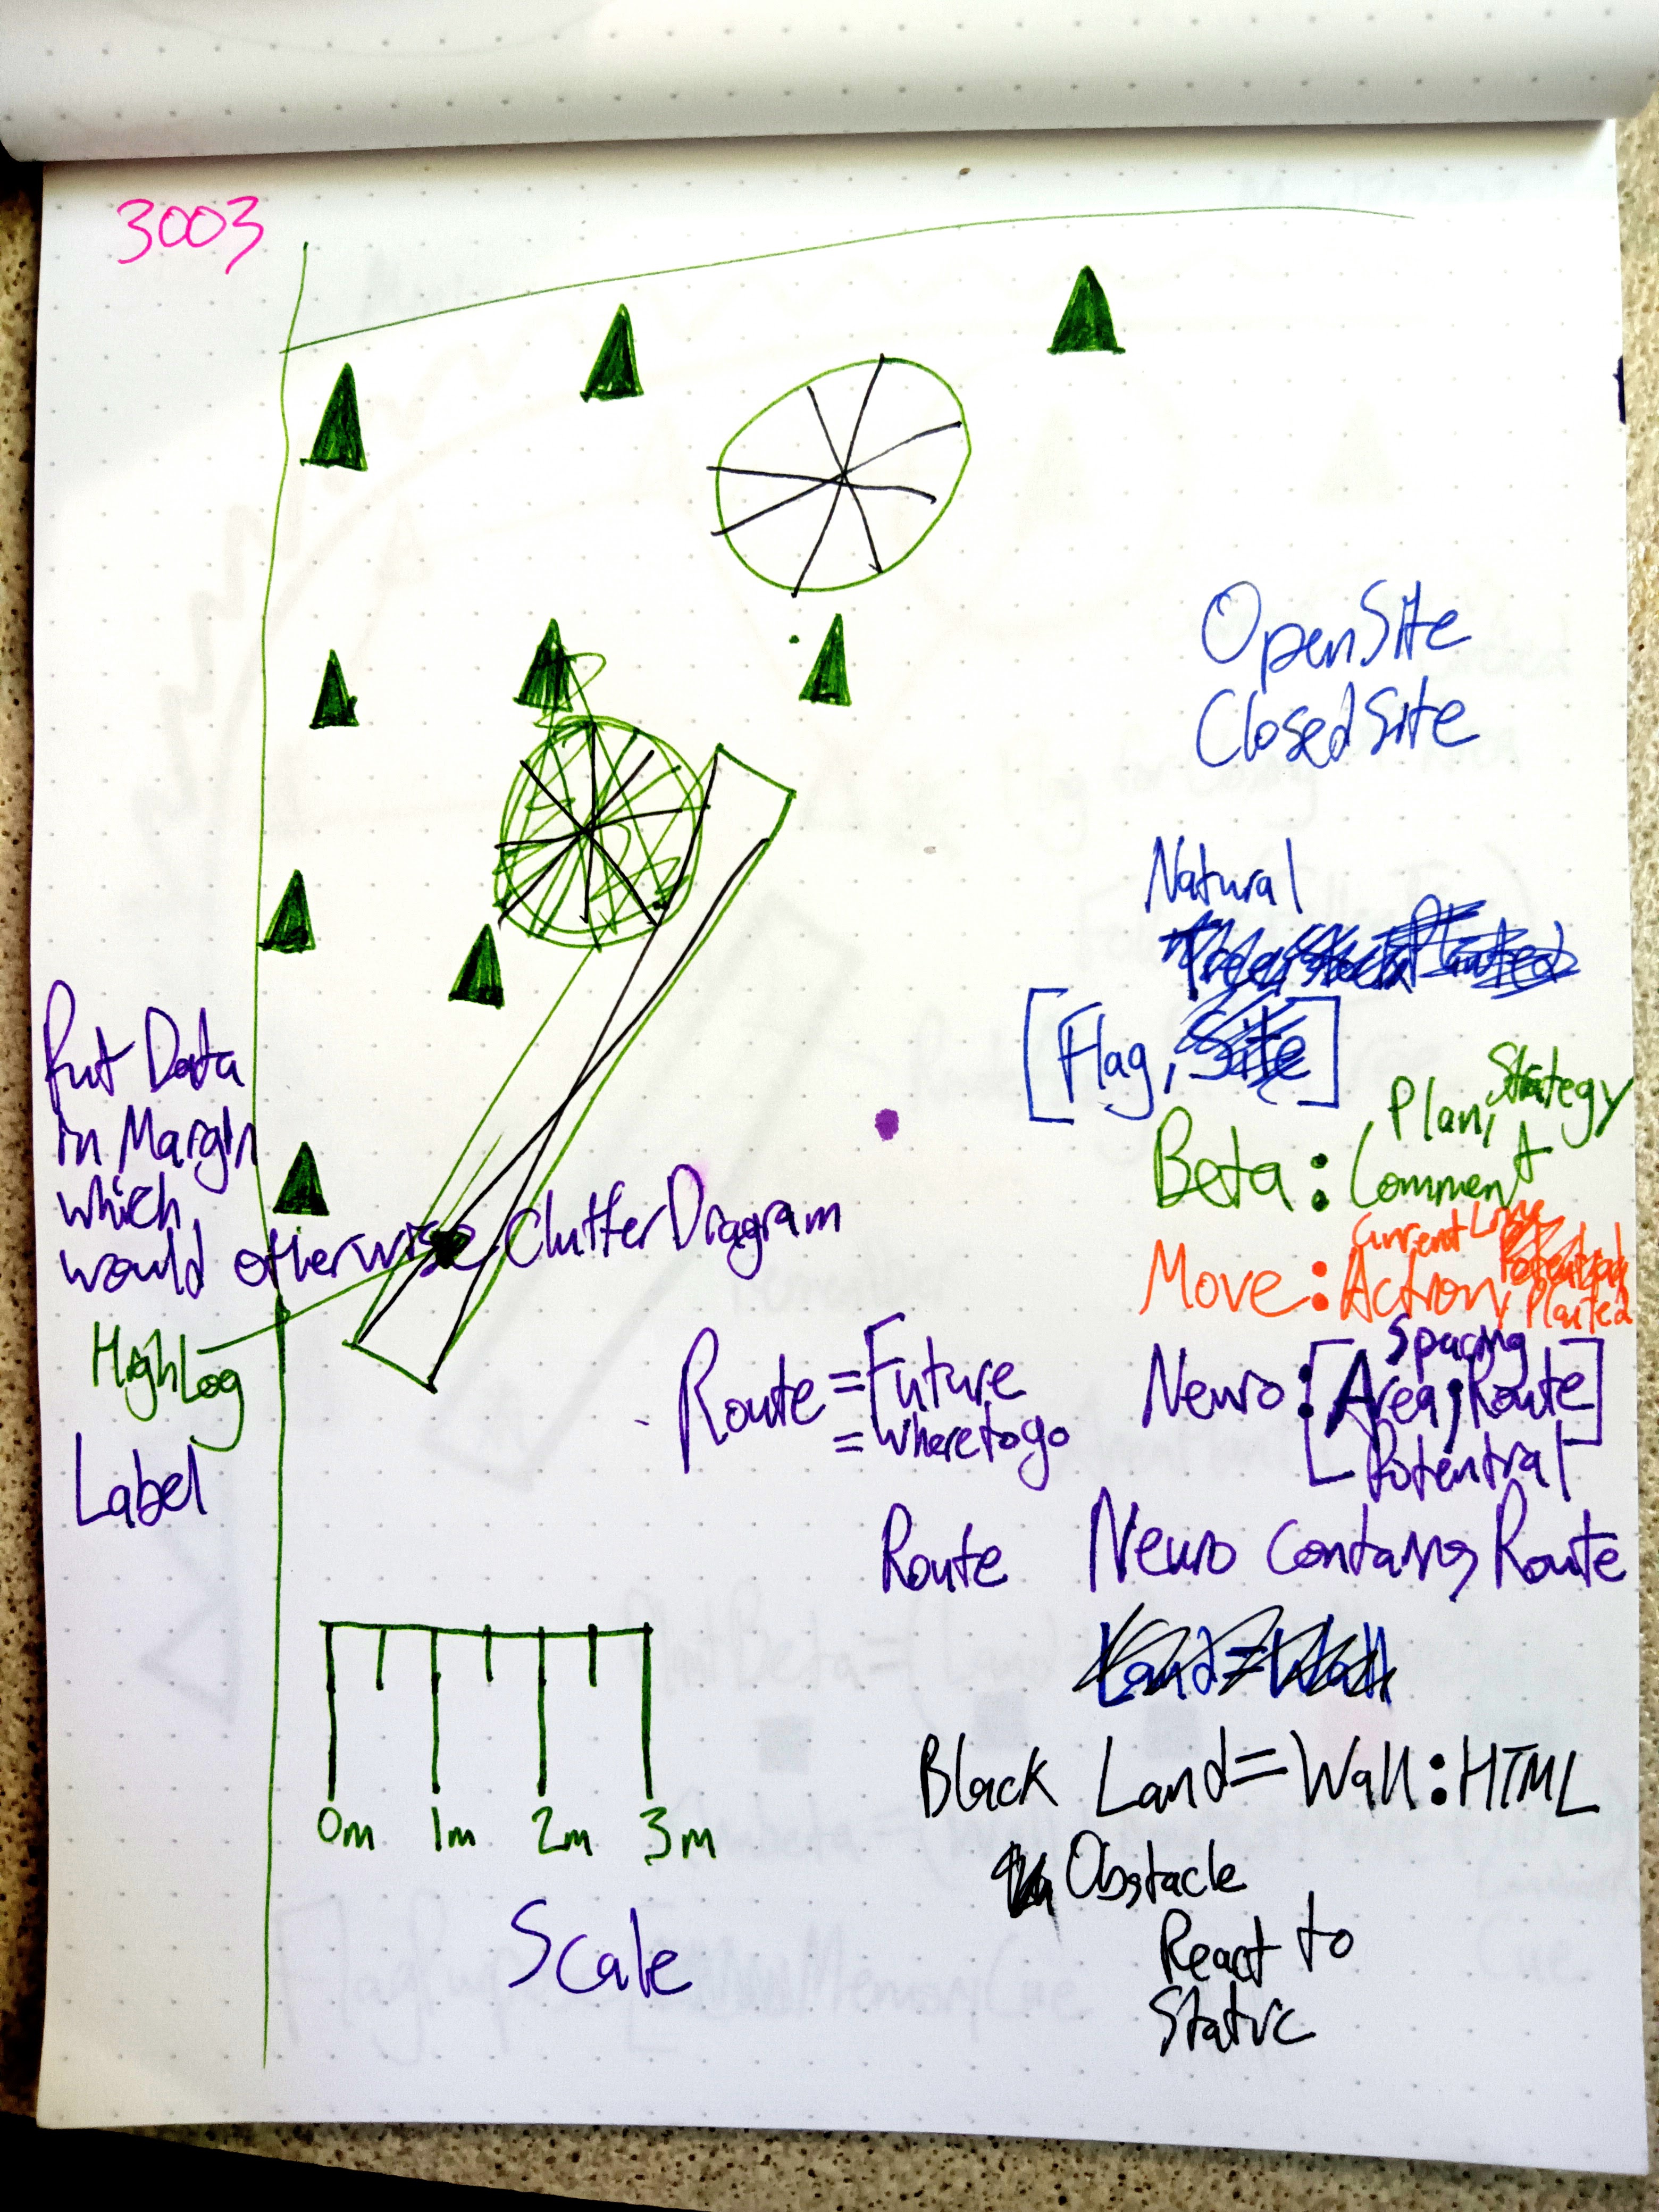 3003
Open Site
Closed Site
Natural
[Flag, Site]
Plan, Strategy
Beta: Comment
Current Line
Move: Action, Planted
Spacing
Neuro: [Area, Route]
Potential
Put Data
in Margin
which
would otherwise Clutter Diagram
High Log
Label
Route = Future
= Where to go
Route Neuro contains Route
Land = Wall
Black Land = Wall: HTML
Obstacle
React to
Static
0m 1m 2m 3m
Scale